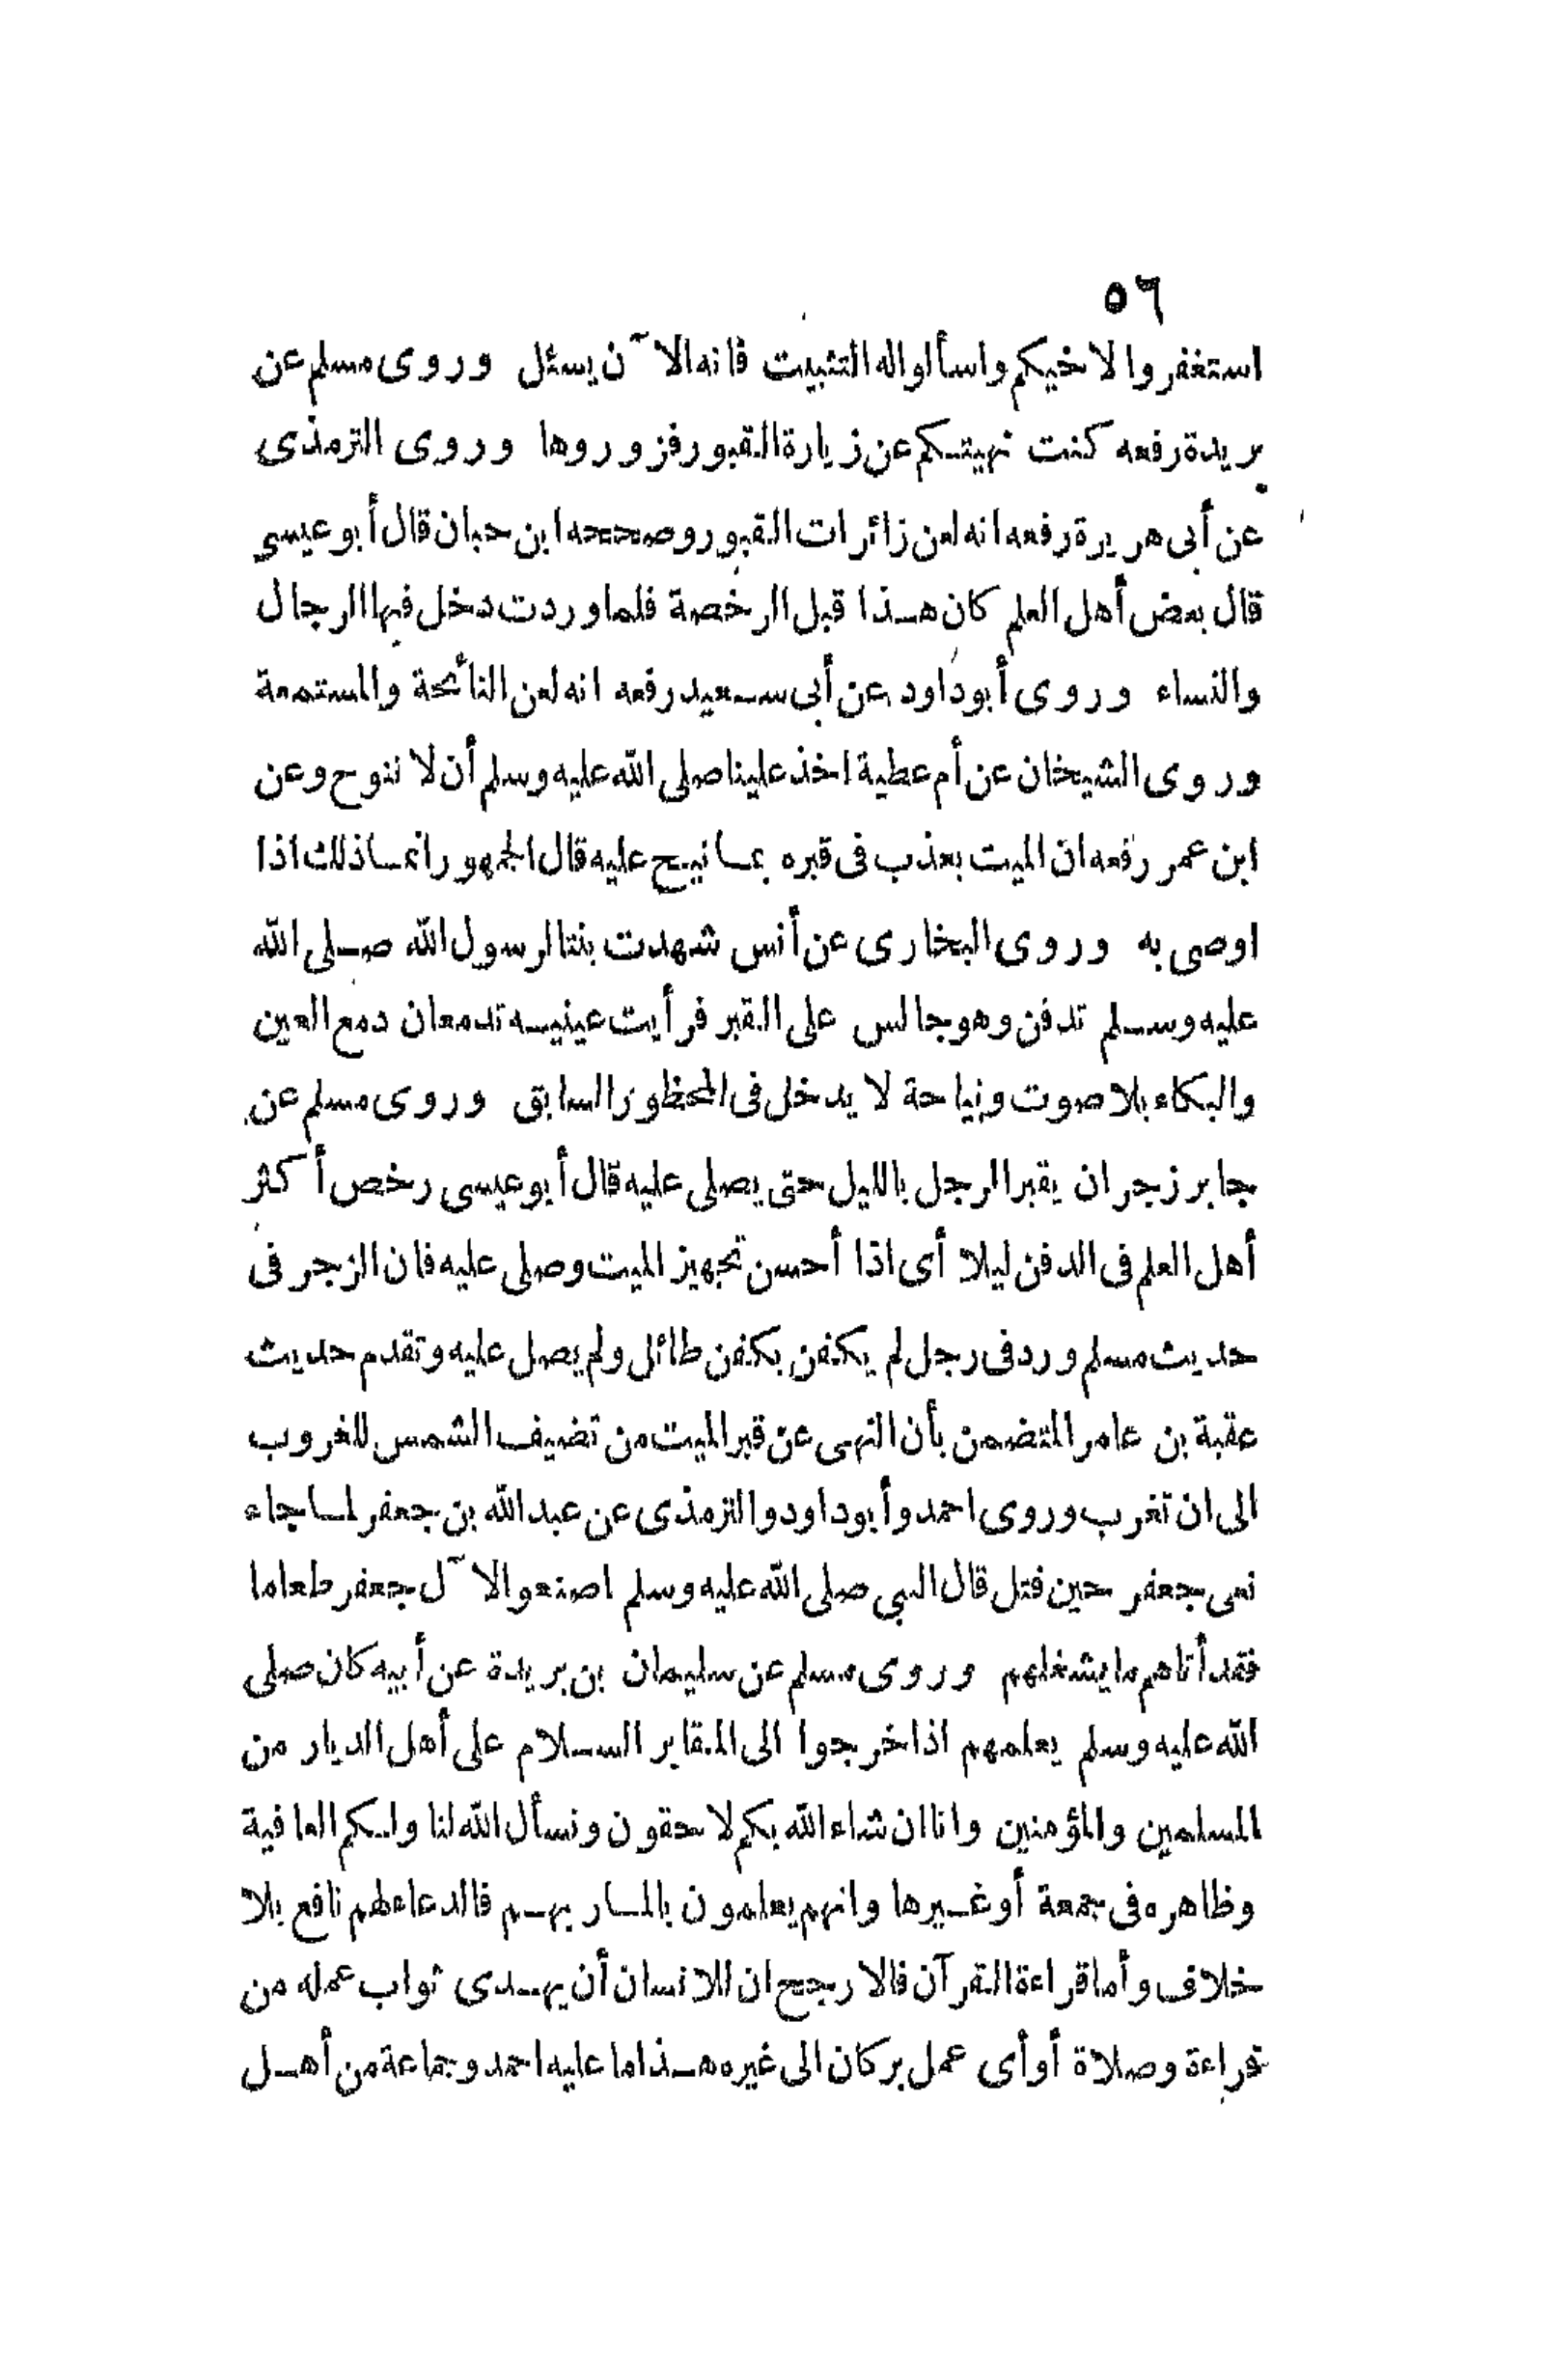 ٥٦
استغفروا لاخيكم واسألوا له التثبيت فانه الآن يسئل وروى مسلم عن
بريدة رفعه كنت نهيتكم عن زيارة القبور فزوروها وروى الترمذى
عن أبى هريرة رفعه انه لعن زائرات القبور وصححه ابن حبان قال أبو عيسى
قال بعض أهل العلم كان هذا قبل الرخصة فلما وردت دخل فيها الرجال
والنساء وروى أبو داود عن أبى سعيد رفعه انه لعن النائحة والمستمعة
وروى الشيخان عن أم عطية اخذ علينا صلى الله عليه وسلم أن لا ننوح وعن
ابن عمر رفعه ان الميت يعذب فى قبره بما نيح عليه قال الجمهور انما ذلك اذا
اوصى به وروى البخارى عن أنس شهدت بنتا لرسول الله صلى الله
عليه وسلم تدفن وهو جالس على القبر فرأيت عينيه تدمعان دمع العين
والبكاء بلا صوت ونياحة لا يدخل فى المحظور السابق وروى مسلم عن
جابر زجر ان يقبر الرجل بالليل حتى يصلى عليه قال أبو عيسى رخص أكثر
أهل العلم فى الدفن ليلا أى اذا أحسن تجهيز الميت وصلى عليه فان الزجر فى
حديث مسلم ورد فى رجل لم يكفن بكفن طائل ولم يصل عليه وتقدم حديث
عقبة بن عامر المتضمن بأن النهى عن قبر الميت من تضيف الشمس للغروب
الى ان تغرب وروى احمد وأبو داود والترمذى عن عبد الله بن جعفر لما جاء
نعى جعفر حين قتل قال النبى صلى الله عليه وسلم اصنعوا لآل جعفر طعاما
فقد أتاهم ما يشغلهم وروى مسلم عن سليمان بن بريدة عن أبيه كان صلى
الله عليه وسلم يعلمهم اذا خرجوا الى المقابر السلام على أهل الديار من
المسلمين والمؤمنين وانا ان شاء الله بكم لاحقون ونسأل الله لنا ولكم العافية
وظاهره فى جمعة أو غيرها وانهم يعلمون بالمار بهم فالدعاء لهم نافع بلا
خلاف وأما قراءة القرآن فالارجح ان للانسان أن يهدى ثواب عمله من
قراءة وصلاة أو أى عمل بر كان الى غيره هذا ما عليه احمد وجماعة من أهل